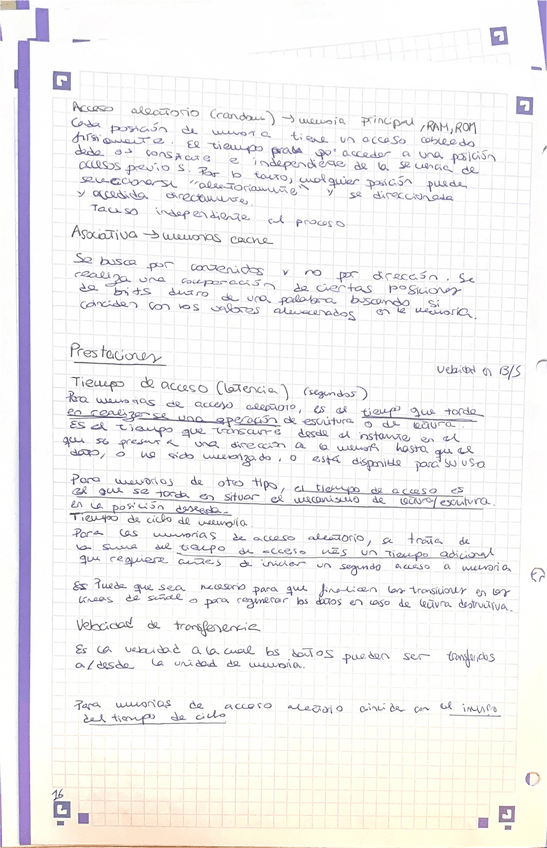 Acceso aleatorio (random) → memoria principal, RAM, ROM
Cada posición de memoria tiene un acceso cableado
físicamente. El tiempo para acceder a una posición
dada es constante e independiente de la secuencia de
accesos previos. Por lo tanto, cualquier posición puede
seleccionarse "aleatoriamente" y se direccionada
y accedida directamente.
independiente al proceso
Asociativa → memorias cache
Se busca por contenidos y no por dirección. Se
realiza una comparación de ciertas posiciones
de bits dentro de una palabra buscando si
coinciden con los valores almacenados en la memoria.
Prestaciones
velocidad en B/S
Tiempo de acceso (latencia) (segundos)
Para memorias de acceso aleatorio, es el tiempo que tarda
en realizarse una operación de escritura o de lectura.
Es el tiempo que transcurre desde el instante en el
que se presenta una dirección a la memoria hasta que el
dato, o ha sido memorizado, o está disponible para su uso
Para memorias de otro tipo, el tiempo de acceso es
el que se tarda en situar el mecanismo de lectura/escritura
en la posición deseada.
Tiempo de ciclo de memoria
Para las memorias de acceso aleatorio, se trata de
la suma del tiempo de acceso más un tiempo adicional
que requiere antes de iniciar un segundo acceso a memoria
Es Puede que sea necesario para que finalicen las transiciones en las
líneas de señal o para regenerar los datos en caso de lectura destructiva.
Velocidad de transferencia
Es la velocidad a la cual los datos pueden ser transferidos
a/desde la unidad de memoria.
Para memorias de acceso aleatorio coincide con el inverso
del tiempo de ciclo
16